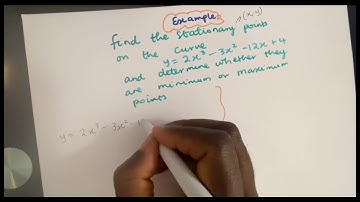 Example
→(x,y)
find the stationary points
on the curve
y = 2x³ - 3x² - 12x + 4
and determine whether they
are minimum or maximum
points
y = 2x³ - 3x² - 1